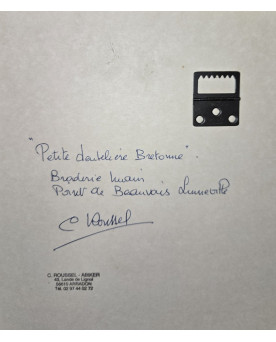 "Petite dentelière Bretonne".
Broderie main
Point de Beauvais Lunneville
C Roussel
C. ROUSSEL - ARKER
56610 ARRADON
Tél. 02 97 44 02 72